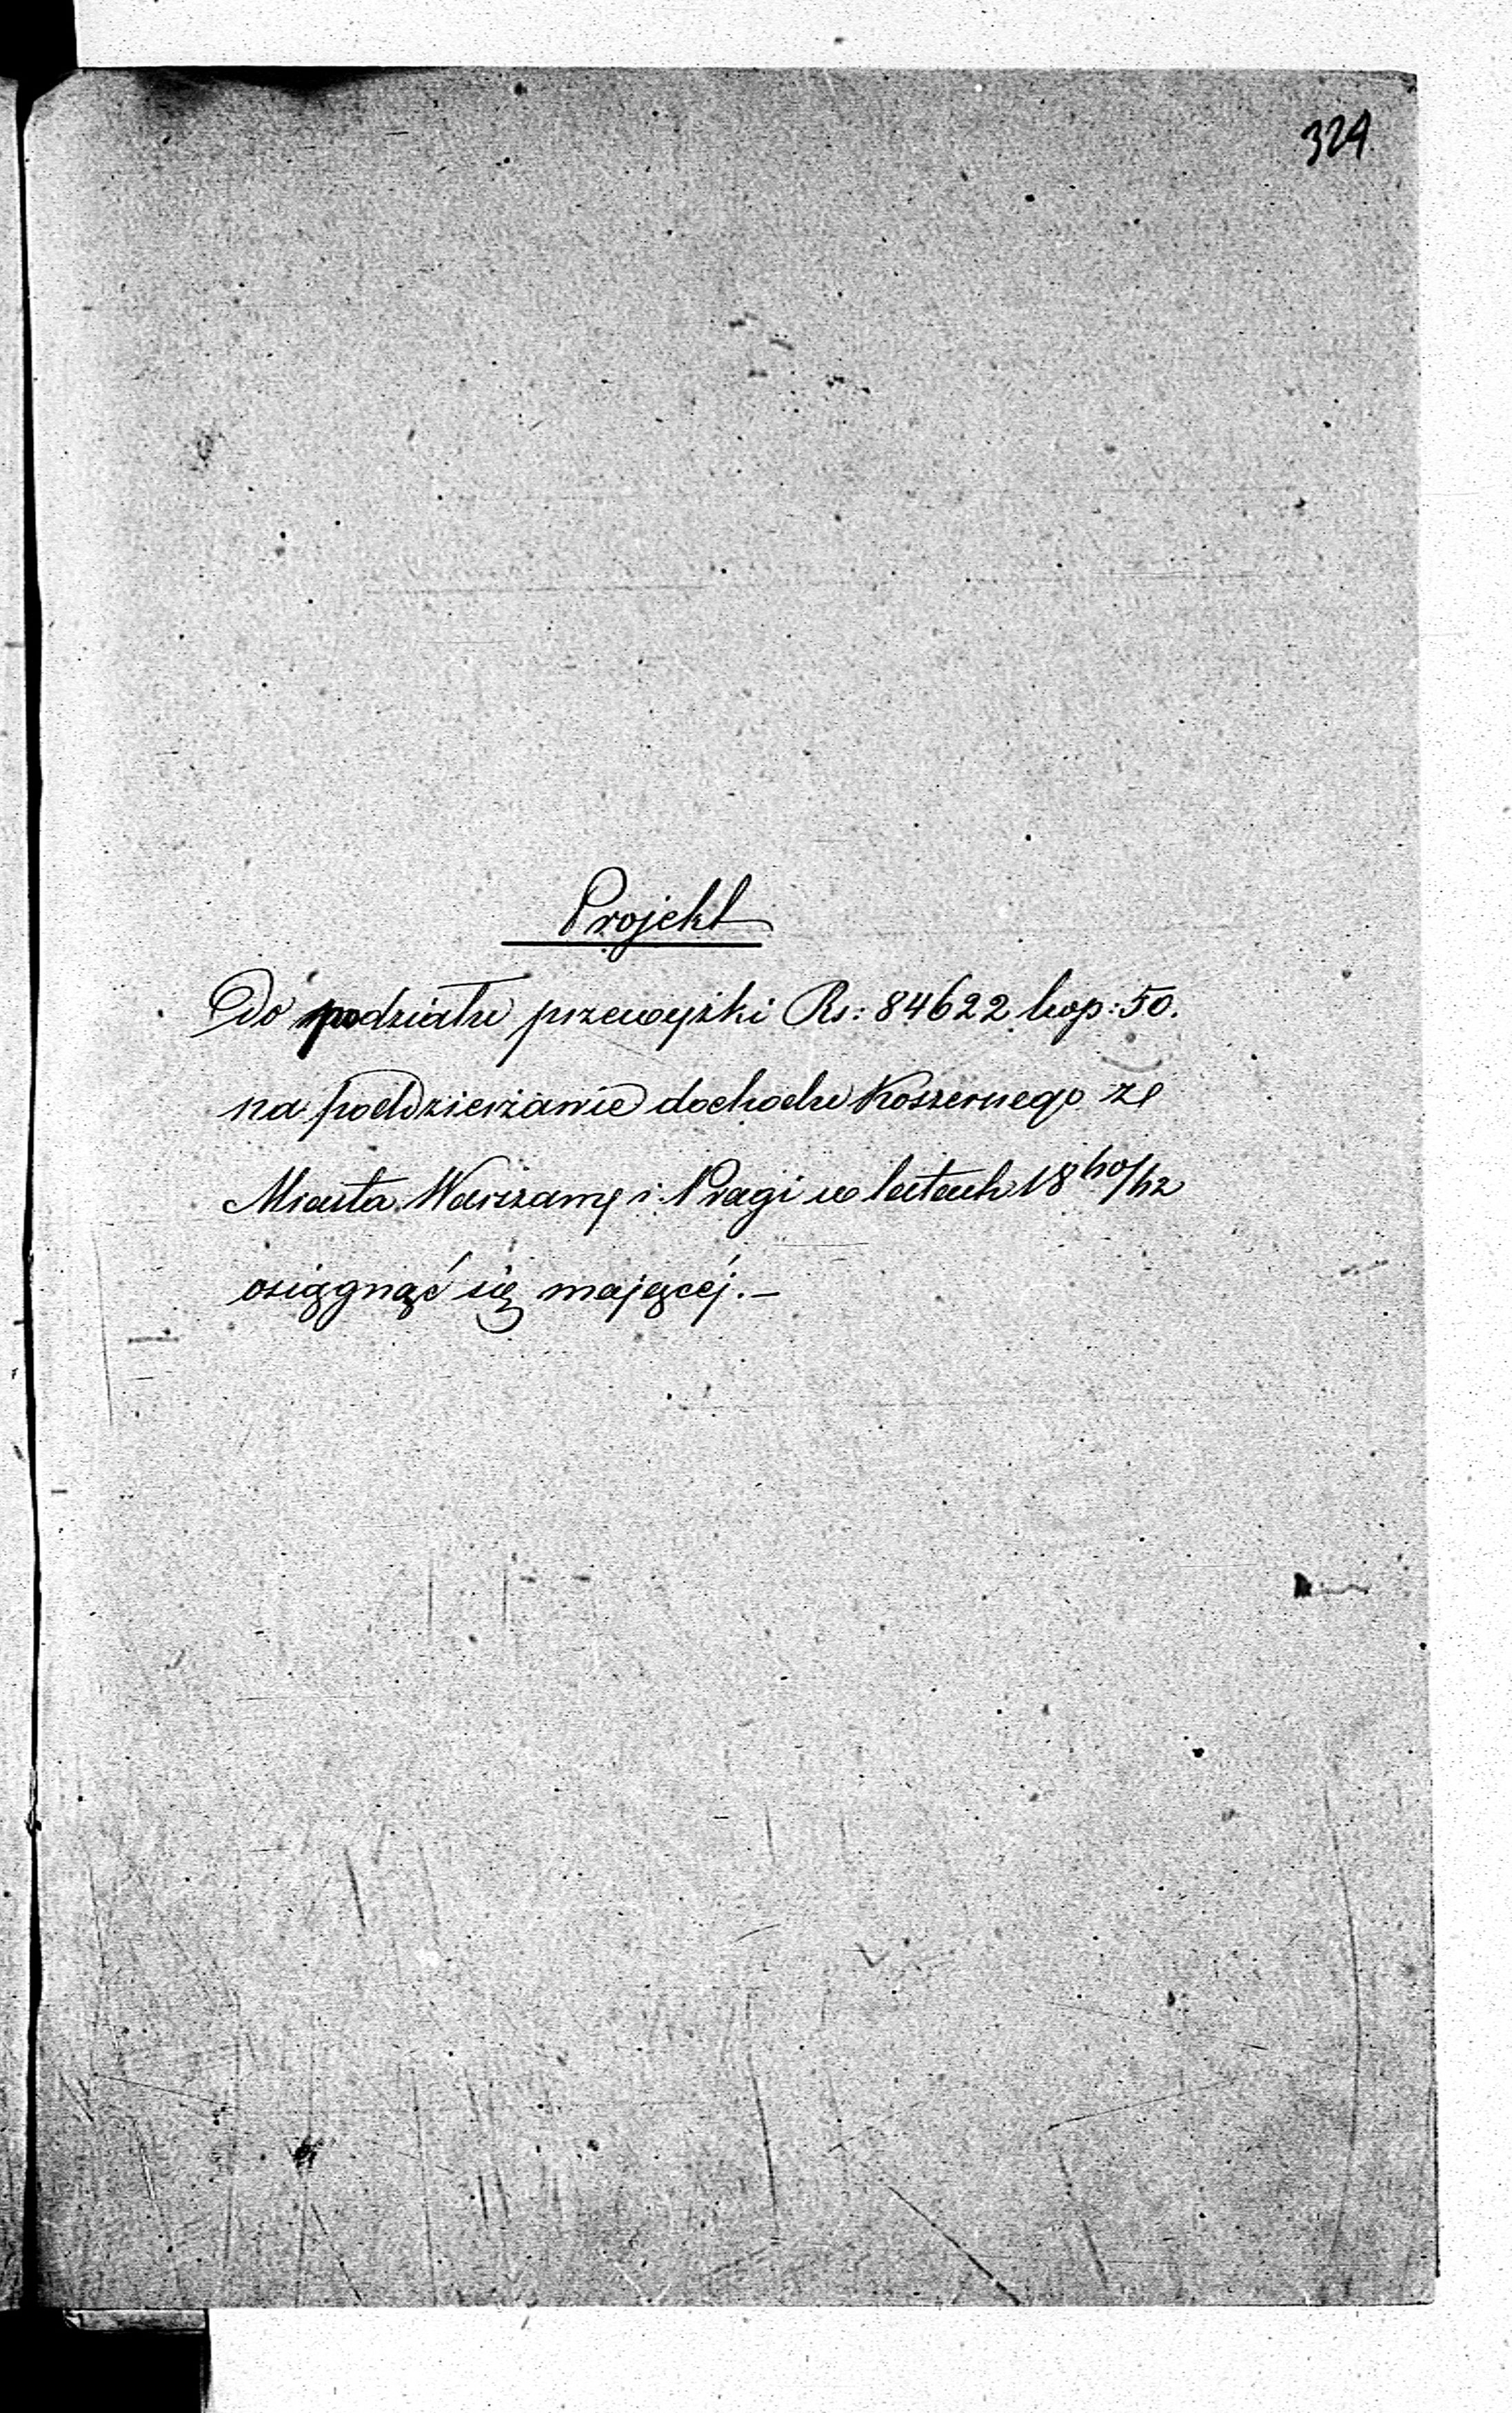 324
Projekt
Do podziału przewyżki Rs: 84622 kop: 50.
na poddzierżawie dochodu Koszernego ze
Miasta Warszawy i Pragi w latach 18 60/62
osiągnąć się mającéj.—